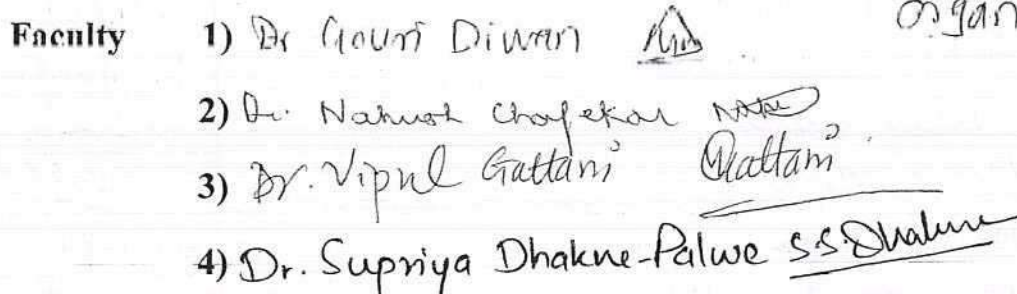 Faculty 1) Dr Gouri Diwan organ
2) Dr. Nahush Chafekar
3) Dr. Vipul Gattani Gattani
4) Dr. Supriya Dhakne-Palwe S.S.Dhakne